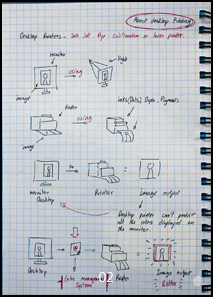 About Desktop Printing
Desktop Printers - Ink Jet, Dye Sublimation or laser printer.
monitor
light
using
image
Printer
Inks (Dots) Dyes, Pigments
using
image
to
=
monitor
Desktop
Printer
Image output
Desktop printer can't produce
all the colors displayed on
the monitor.
02
=
Desktop
Color management
System
Printer
Image output
Better